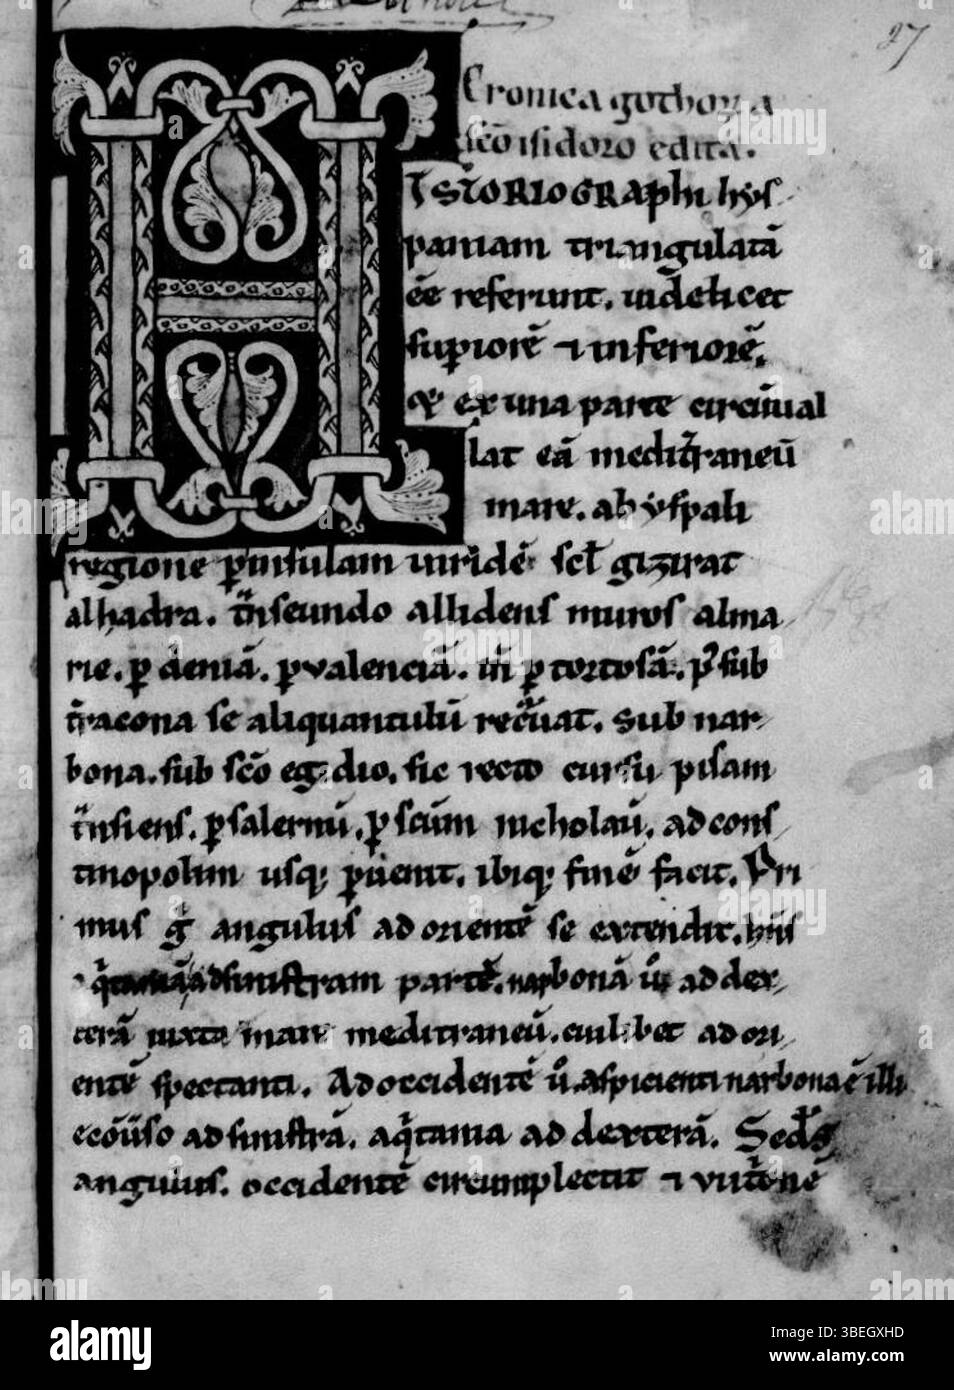 27
Cronica gothoꝝ a
sc̄o isidoro edita.
HISTORIOGRAPhi hys
paniam triangulatā
eē referunt. uidelicet
suꝑiorē ⁊ inferiorē.
ex una parte circūual
lat eā mediťraneū
mare. ab yspali
regione ꝑ insulam uiridē scł gizirat
alhadra. t̄nseundo allidens muros alma
rie. ꝑ deniā. ꝑ ualenciā. ꝑ tortosā. sub
t̄racona se aliquantulū recuruat. Sub nar
bona. sub sc̄o egidio. sic recto cursu pisam
t̄nsiens. ꝑ salernū. ꝑ sc̄um nicholaū. ad cons
tinopolim usq; ꝑuenit. ibiq; finē facit. Pri
mus g̊ angulus ad orientē se extendit. hn̄s
aq̇taniā ad sinistram partē. narbonā ů ad dex
terā iuxta mare mediterraneū. cuilibet ad ori
entē spectanti. Ad occidentē ů. aspicienti narbona ē illi
ecōůso ad sinistrā. aq̇tania ad dexterā. Secd̄s
angulus. occidentē circumplectit ⁊
a
alamy
Image ID: 3BEGXHD
www.alamy.com